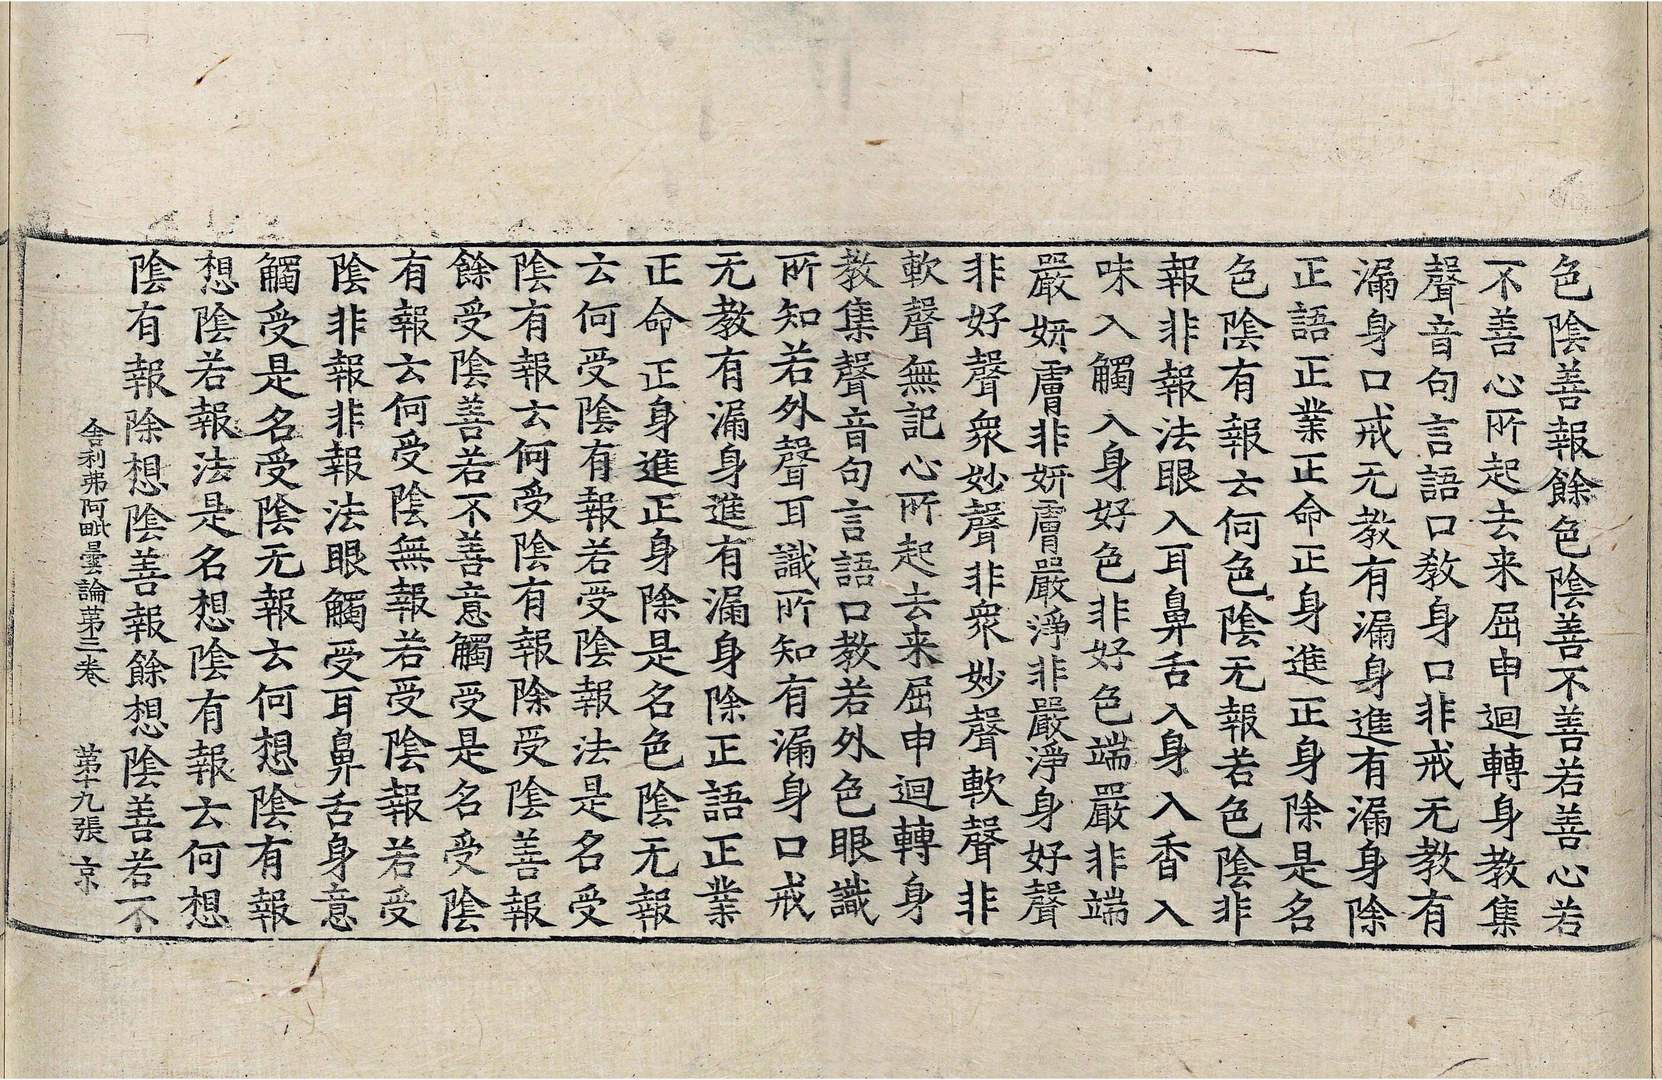 色陰善報餘色陰善不善若善心若
不善心所起去来屈申迴轉身教集
聲音句言語口教身口非戒无教有
漏身口戒无教有漏身進有漏身除
正語正業正命正身進正身除是名
色陰有報云何色陰无報若色陰非
報非報法眼入耳鼻舌入身入香入
味入觸入身好色非好色端嚴非端
嚴妍膚非妍膚嚴淨非嚴淨身好聲
非好聲衆妙聲非衆妙聲軟聲非
軟聲無記心所起去来屈申迴轉身
教集聲音句言語口教若外色眼識
所知若外聲耳識所知有漏身口戒
无教有漏身進有漏身除正語正業
正命正身進正身除是名色陰无報
云何受陰有報若受陰報法是名受
陰有報云何受陰有報除受陰善報
餘受陰善若不善意觸受是名受陰
有報云何受陰無報若受陰報若受
陰非報非報法眼觸受耳鼻舌身意
觸受是名受陰无報云何想陰有報
想陰若報法是名想陰有報云何想
陰有報除想陰善報餘想陰善若不
舍利弗阿毗曇論苐三卷 苐十九張 京